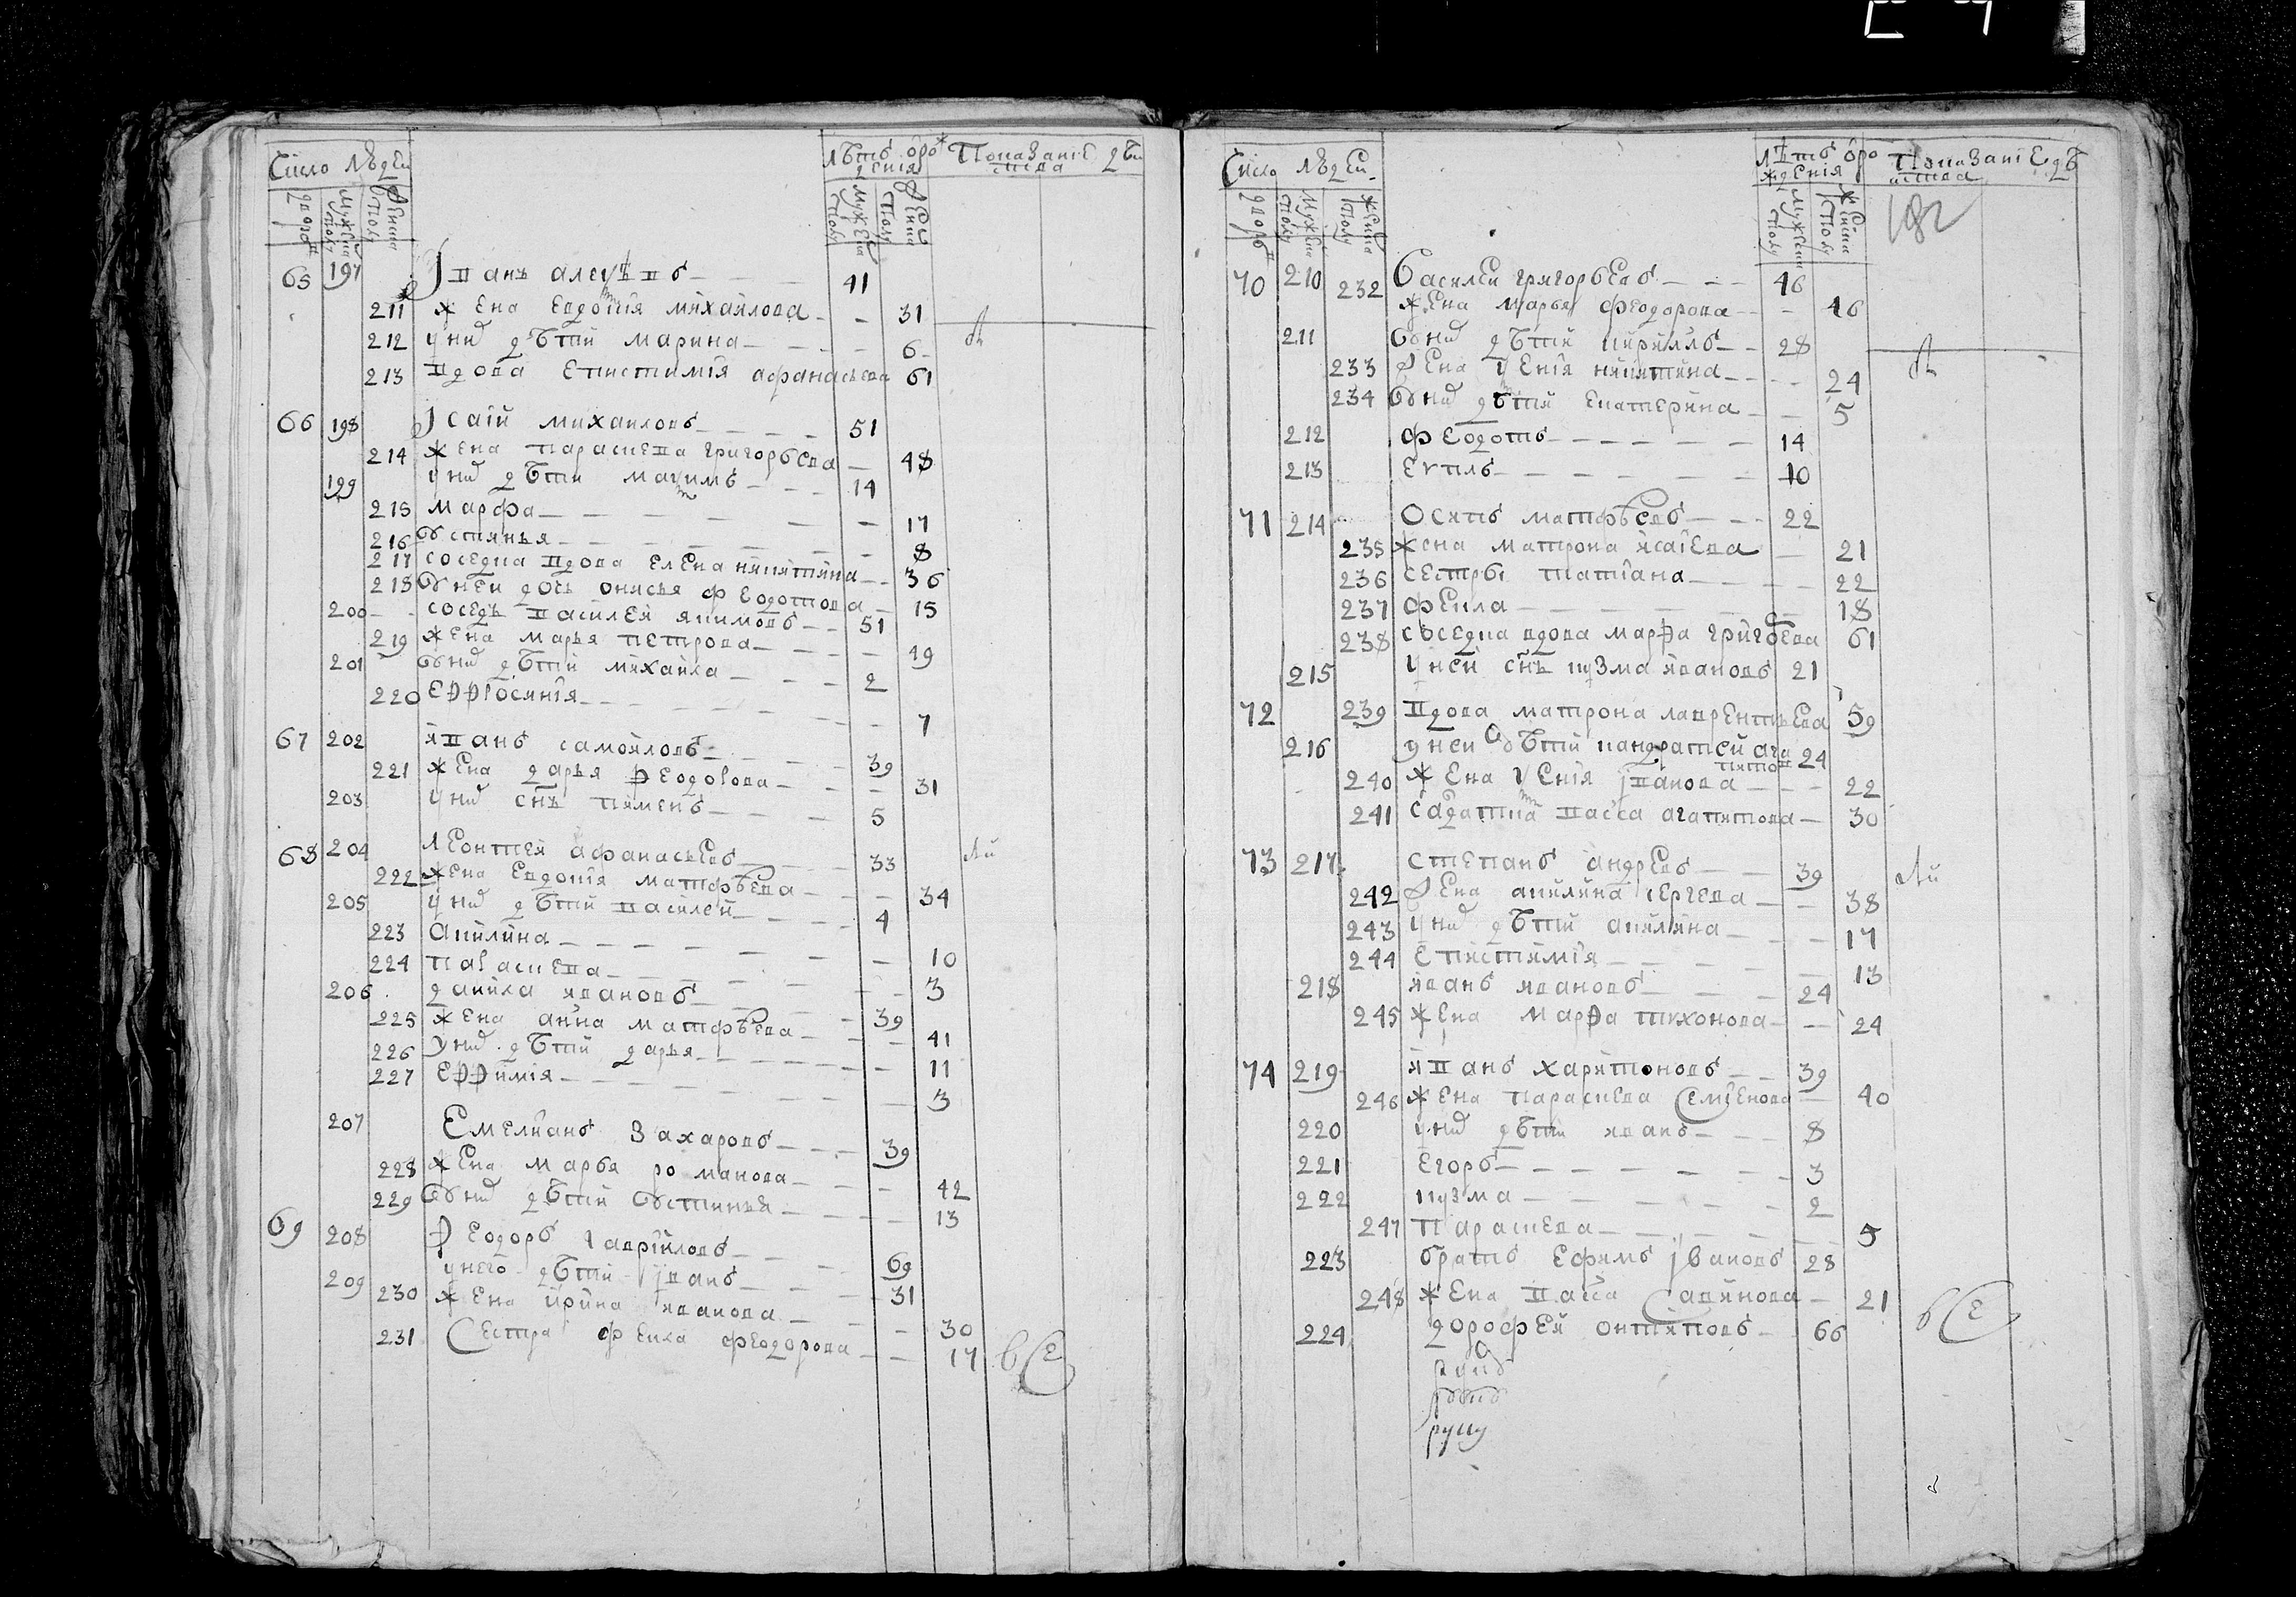 Число людей
лѣтъ ѿрожденія
Показаніе дѣйства
дворовъ
Мужеска полу
Женска полу
Мужеска полу
Женска полу
65 197 Іванъ алеѯѣевъ 41
211 жена евдокія михаилова 31
212 у них дѣти марина 6
213 вдова епистимія афанасьева 61
66 198 Ісаій михаиловъ 51
214 жена параскева григорьева 48
199 у них дѣти маѯимъ 14
215 марфа 17
216 ѹстинья 8
217 соседка вдова елена никитина 36
218 ѹ неи дочь онисья феодотова 15
200 соседъ василей якимовъ 51
219 жена марья петрова 49
201 ѹ них дѣти михаила 2
220 еѳѳросинія 7
67 202 иванъ самойловъ 39
221 жена дарья ѳеодорова 31
203 у них снъ пименъ 5
68 204 леонтей афанасьевъ 33
222 жена евдокія матфѣева 34
205 у них дѣти василей 4
223 акилина 10
224 параскева 3
206 данила ивановъ 39
225 жена анна матфѣева 41
226 у них дѣти дарья 11
227 еѳѳимія 3
207 Емеліанъ Захаровъ 39
228 жена марья романова 42
229 ѹ них дѣти ѹстинья 13
69 208 Ѳеодоръ гавріиловъ 69
209 у него дѣти іванъ 31
230 жена ирина иванова 30
231 Сестра фекла феодорова 17
Число людей
лѣтъ ѿрожденія
Показаніе дѣйства
182
дворовъ
Мужеска полу
Женска полу
Мужеска полу
Женска полу
70 210 Василей григорьевъ 46
232 жена марья феодорова 46
211 ѹ них дѣти кириллъ 28
233 жена ѯенія никитина 24
234 ѹ них дѣти екатерина 5
212 феодотъ 14
213 еѵплъ 10
71 214 Осипъ матфѣевъ 22
235 жена матрона исаіева 21
236 сестры татіана 22
237 фекла 18
238 соседка вдова марѳа григорева 61
215 у ней снъ кузма ивановъ 21
72 239 вдова матрона лаврентьева 59
216 у неи дѣти кандратей агапитов 24
240 жена ѯенія іванова 22
241 салатка васса агапитова 30
73 217 степанъ андреевъ 39
242 жена акилина сергеева 38
243 у них дѣти акилина 17
244 епистимія 13
218 иванъ ивановъ 24
245 жена марѳа тихонова 24
74 219 иванъ харитоновъ 39
246 жена параскева Семіонова 40
220 у них дѣти иванъ 8
221 егоръ 3
222 кузма 2
247 параскева 5
223 братъ ефимъ івановъ 28
248 жена васса Савинова 21
224 дорофей онтиповъ 66
руку